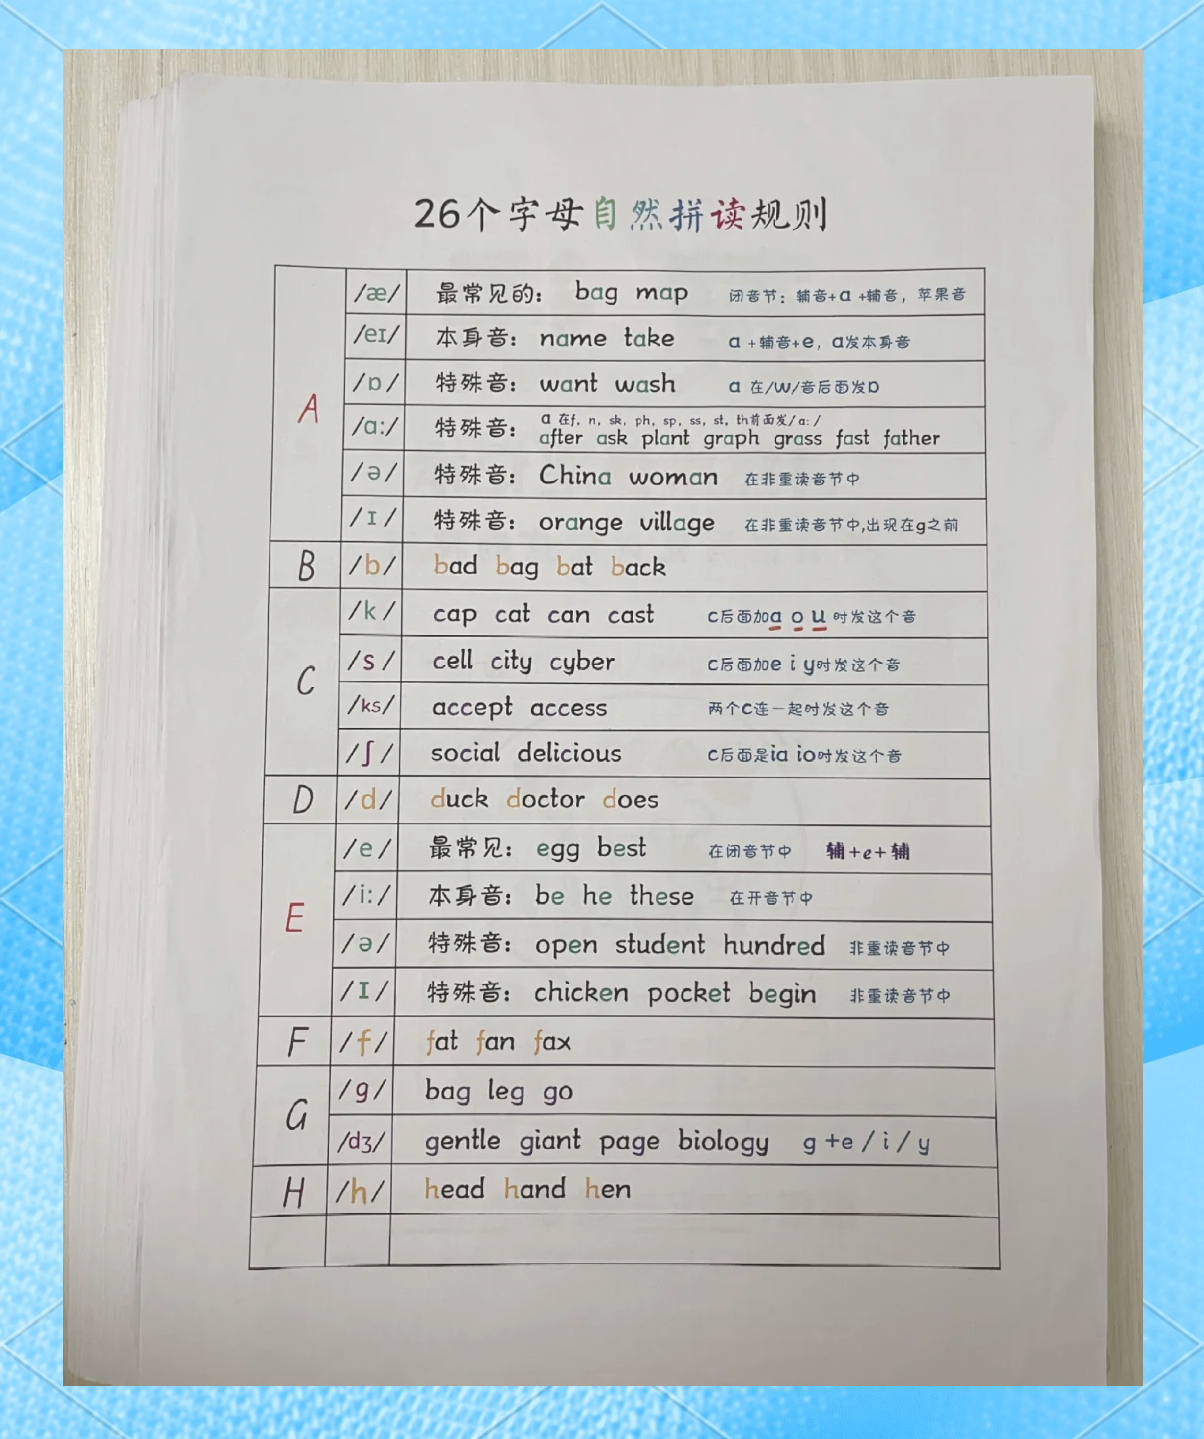 26个字母自然拼读规则
A
/æ/ 最常见的： bag map 闭音节：辅音+a +辅音，苹果音
/eɪ/ 本身音： name take a +辅音+e，a发本身音
/ɒ/ 特殊音： want wash a 在/w/音后面发ɒ
/ɑ:/ 特殊音： a 在f, n, sk, ph, sp, ss, st, th前面发/ɑ:/
after ask plant graph grass fast father
/ə/ 特殊音： China woman 在非重读音节中
/ɪ/ 特殊音： orange village 在非重读音节中,出现在g之前
B /b/ bad bag bat back
C
/k/ cap cat can cast c后面加a o u 时发这个音
/s/ cell city cyber c后面加e i y时发这个音
/ks/ accept access 两个c连一起时发这个音
/ʃ/ social delicious c后面是ia io时发这个音
D /d/ duck doctor does
E
/e/ 最常见： egg best 在闭音节中 辅+e+辅
/i:/ 本身音： be he these 在开音节中
/ə/ 特殊音： open student hundred 非重读音节中
/ɪ/ 特殊音： chicken pocket begin 非重读音节中
F /f/ fat fan fax
G
/g/ bag leg go
/dʒ/ gentle giant page biology g +e / i / y
H /h/ head hand hen